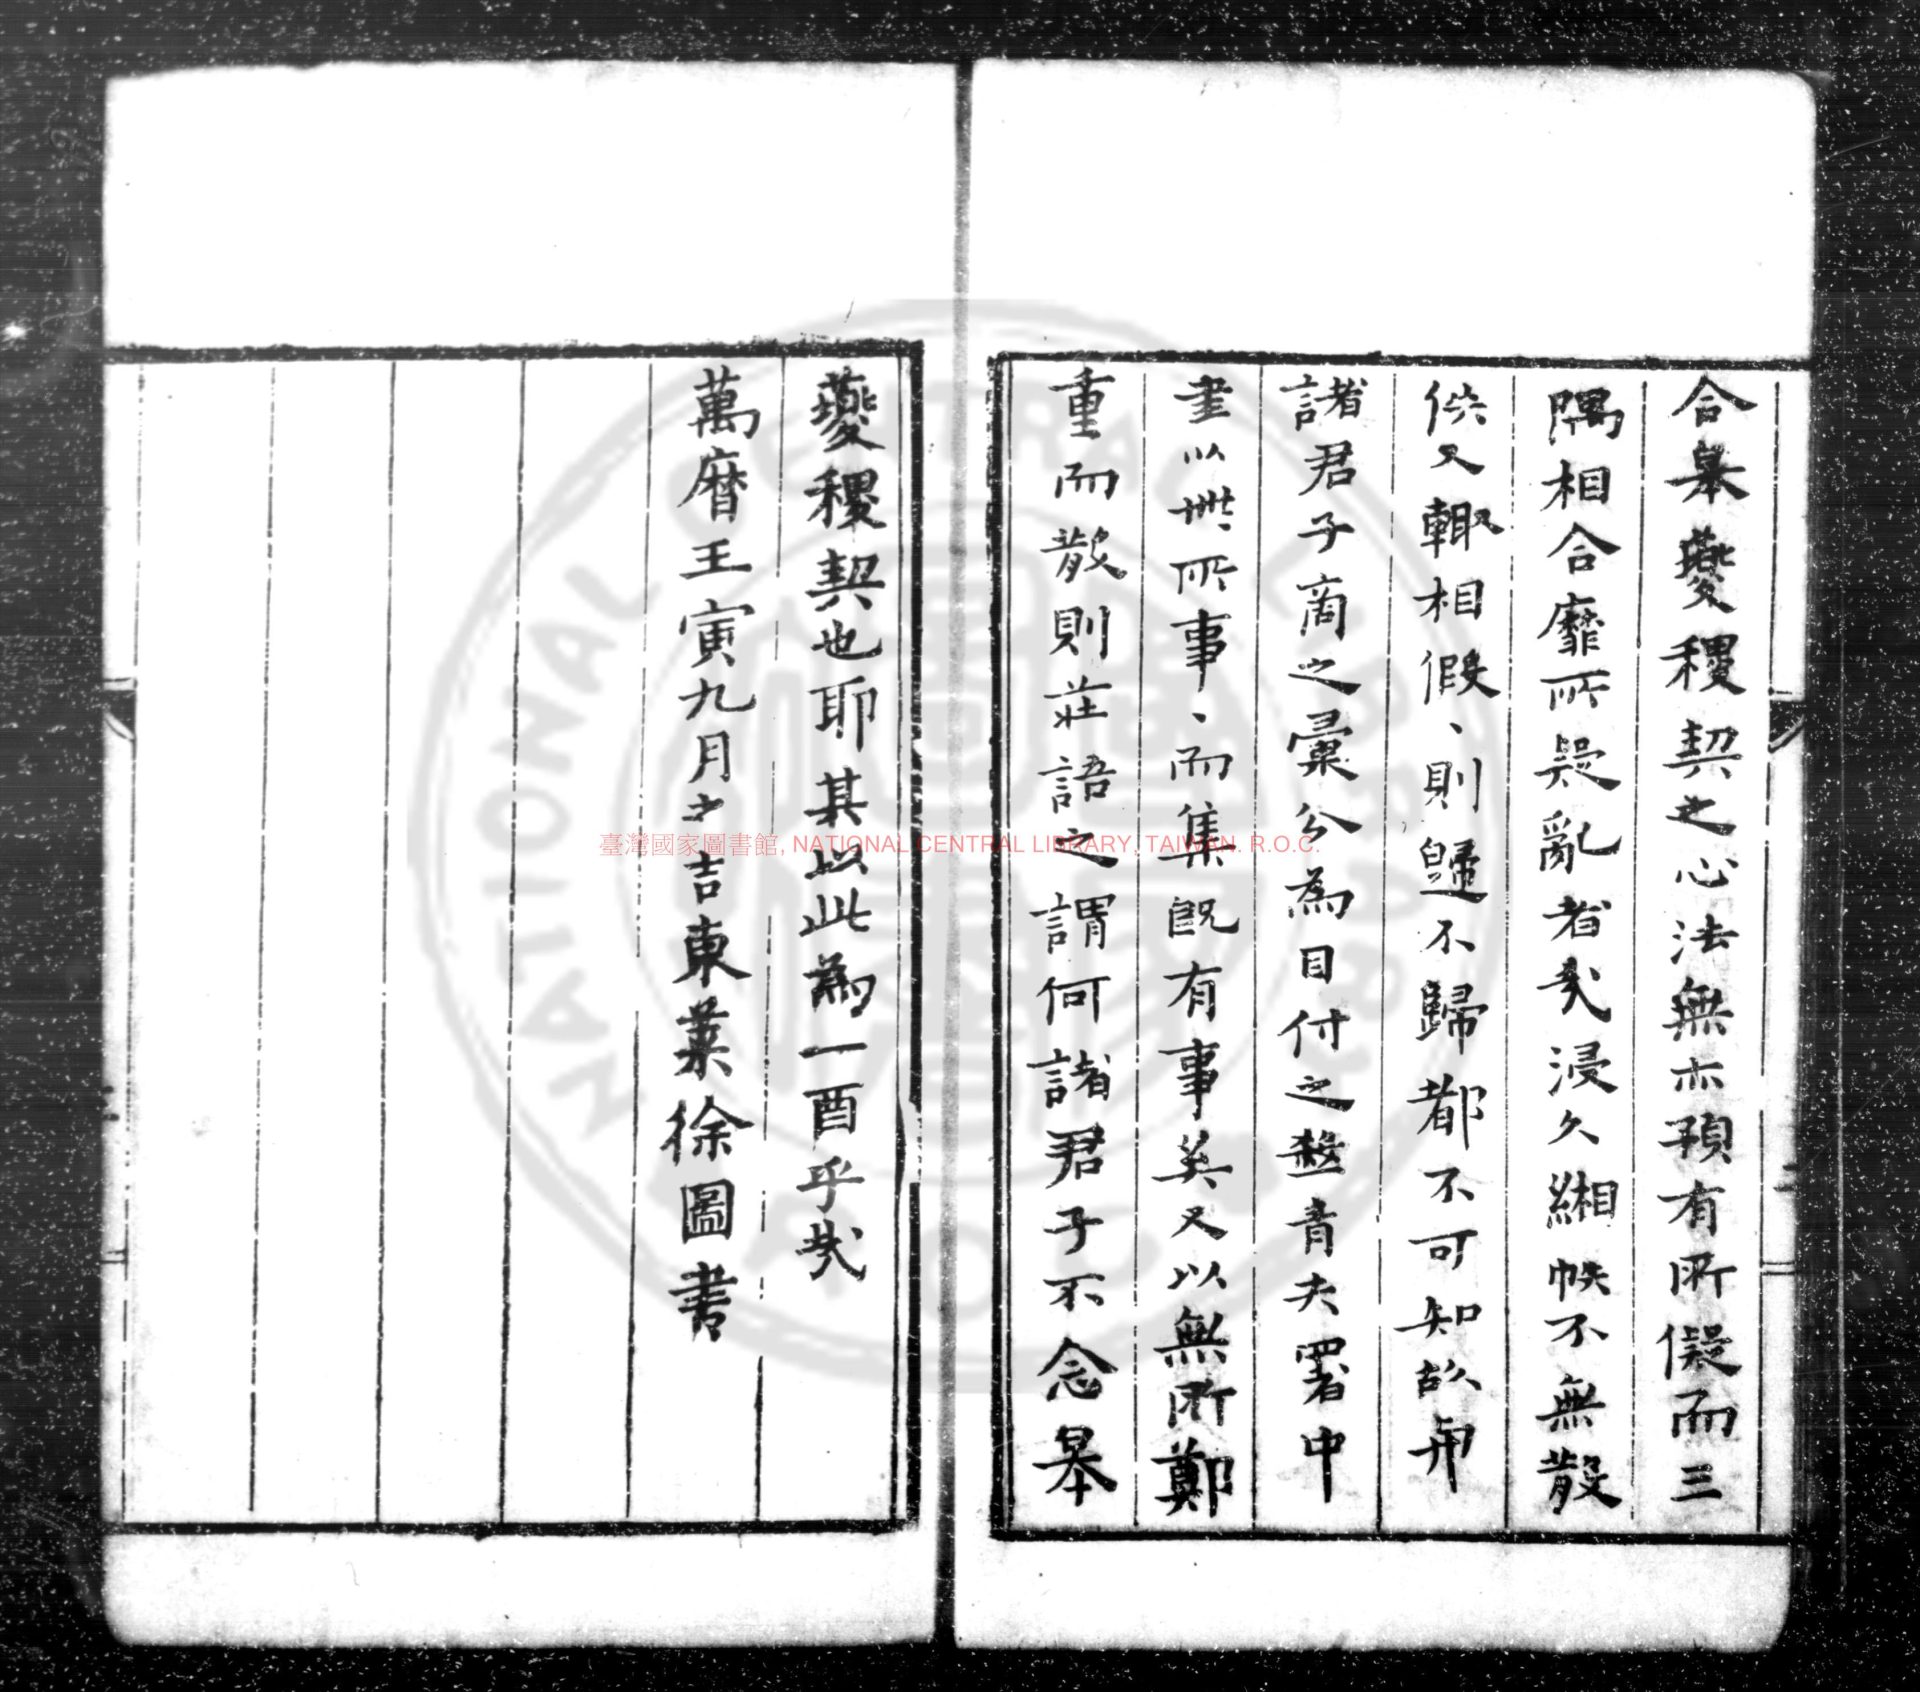 合皋夔稷契之心法無亦預有所儗而三
隅相合靡所疑亂者㢤浸久緗帙不無散
佚又輙相假、則歸不歸都不可知故再
諸君子商之彙分為目付之殺青夫署中
晝以無所事、而集旣有事矣又以無所鄭
重而散則莊語之謂何諸君子不念皋
夔稷契也耶其以此為一酉乎㢤
萬曆壬寅九月之吉東萊徐圖書
臺灣國家圖書館, NATIONAL CENTRAL LIBRARY, TAIWAN. R.O.C.